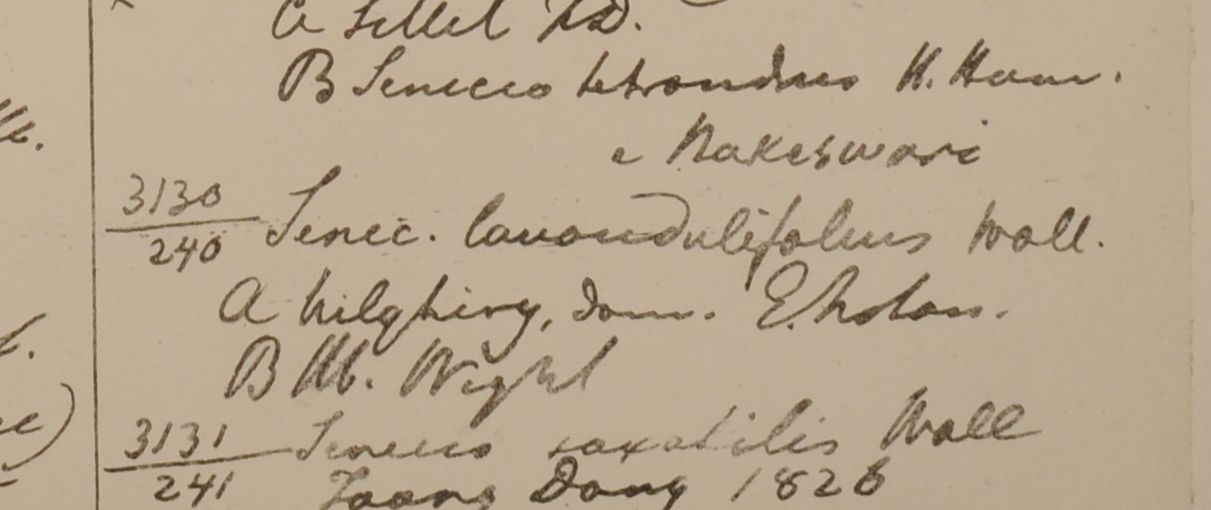 A Sillet F.D.
B Senecio tetrandrus H. Ham.
e Nakeswari
3130
240 Senec. lavandulifolius Wall.
A Nilghiry, dom. E. Noton.
B Hb. Wight
3131
241 Senecio saxatilis Wall
Taong Dong 1826